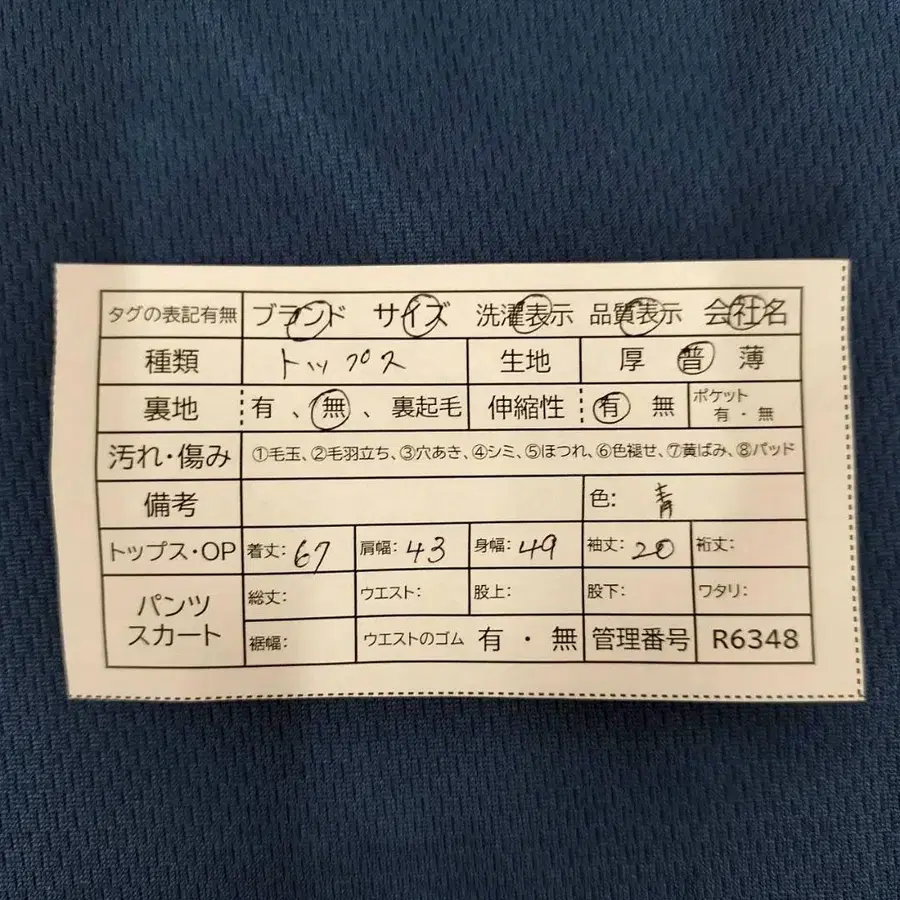 タグの表記有無 ブランド サイズ 洗濯表示 品質表示 会社名
種類 トップス 生地 厚 普 薄
裏地 有、無、裏起毛 伸縮性 有 無 ポケット 有・無
汚れ・傷み ①毛玉、②毛羽立ち、③穴あき、④シミ、⑤ほつれ、⑥色褪せ、⑦黄ばみ、⑧パッド
備考 色: 青
トップス・OP 着丈: 67 肩幅: 43 身幅: 49 袖丈: 20 裄丈:
パンツ スカート 総丈: ウエスト: 股上: 股下: ワタリ:
裾幅: ウエストのゴム 有・無 管理番号 R6348